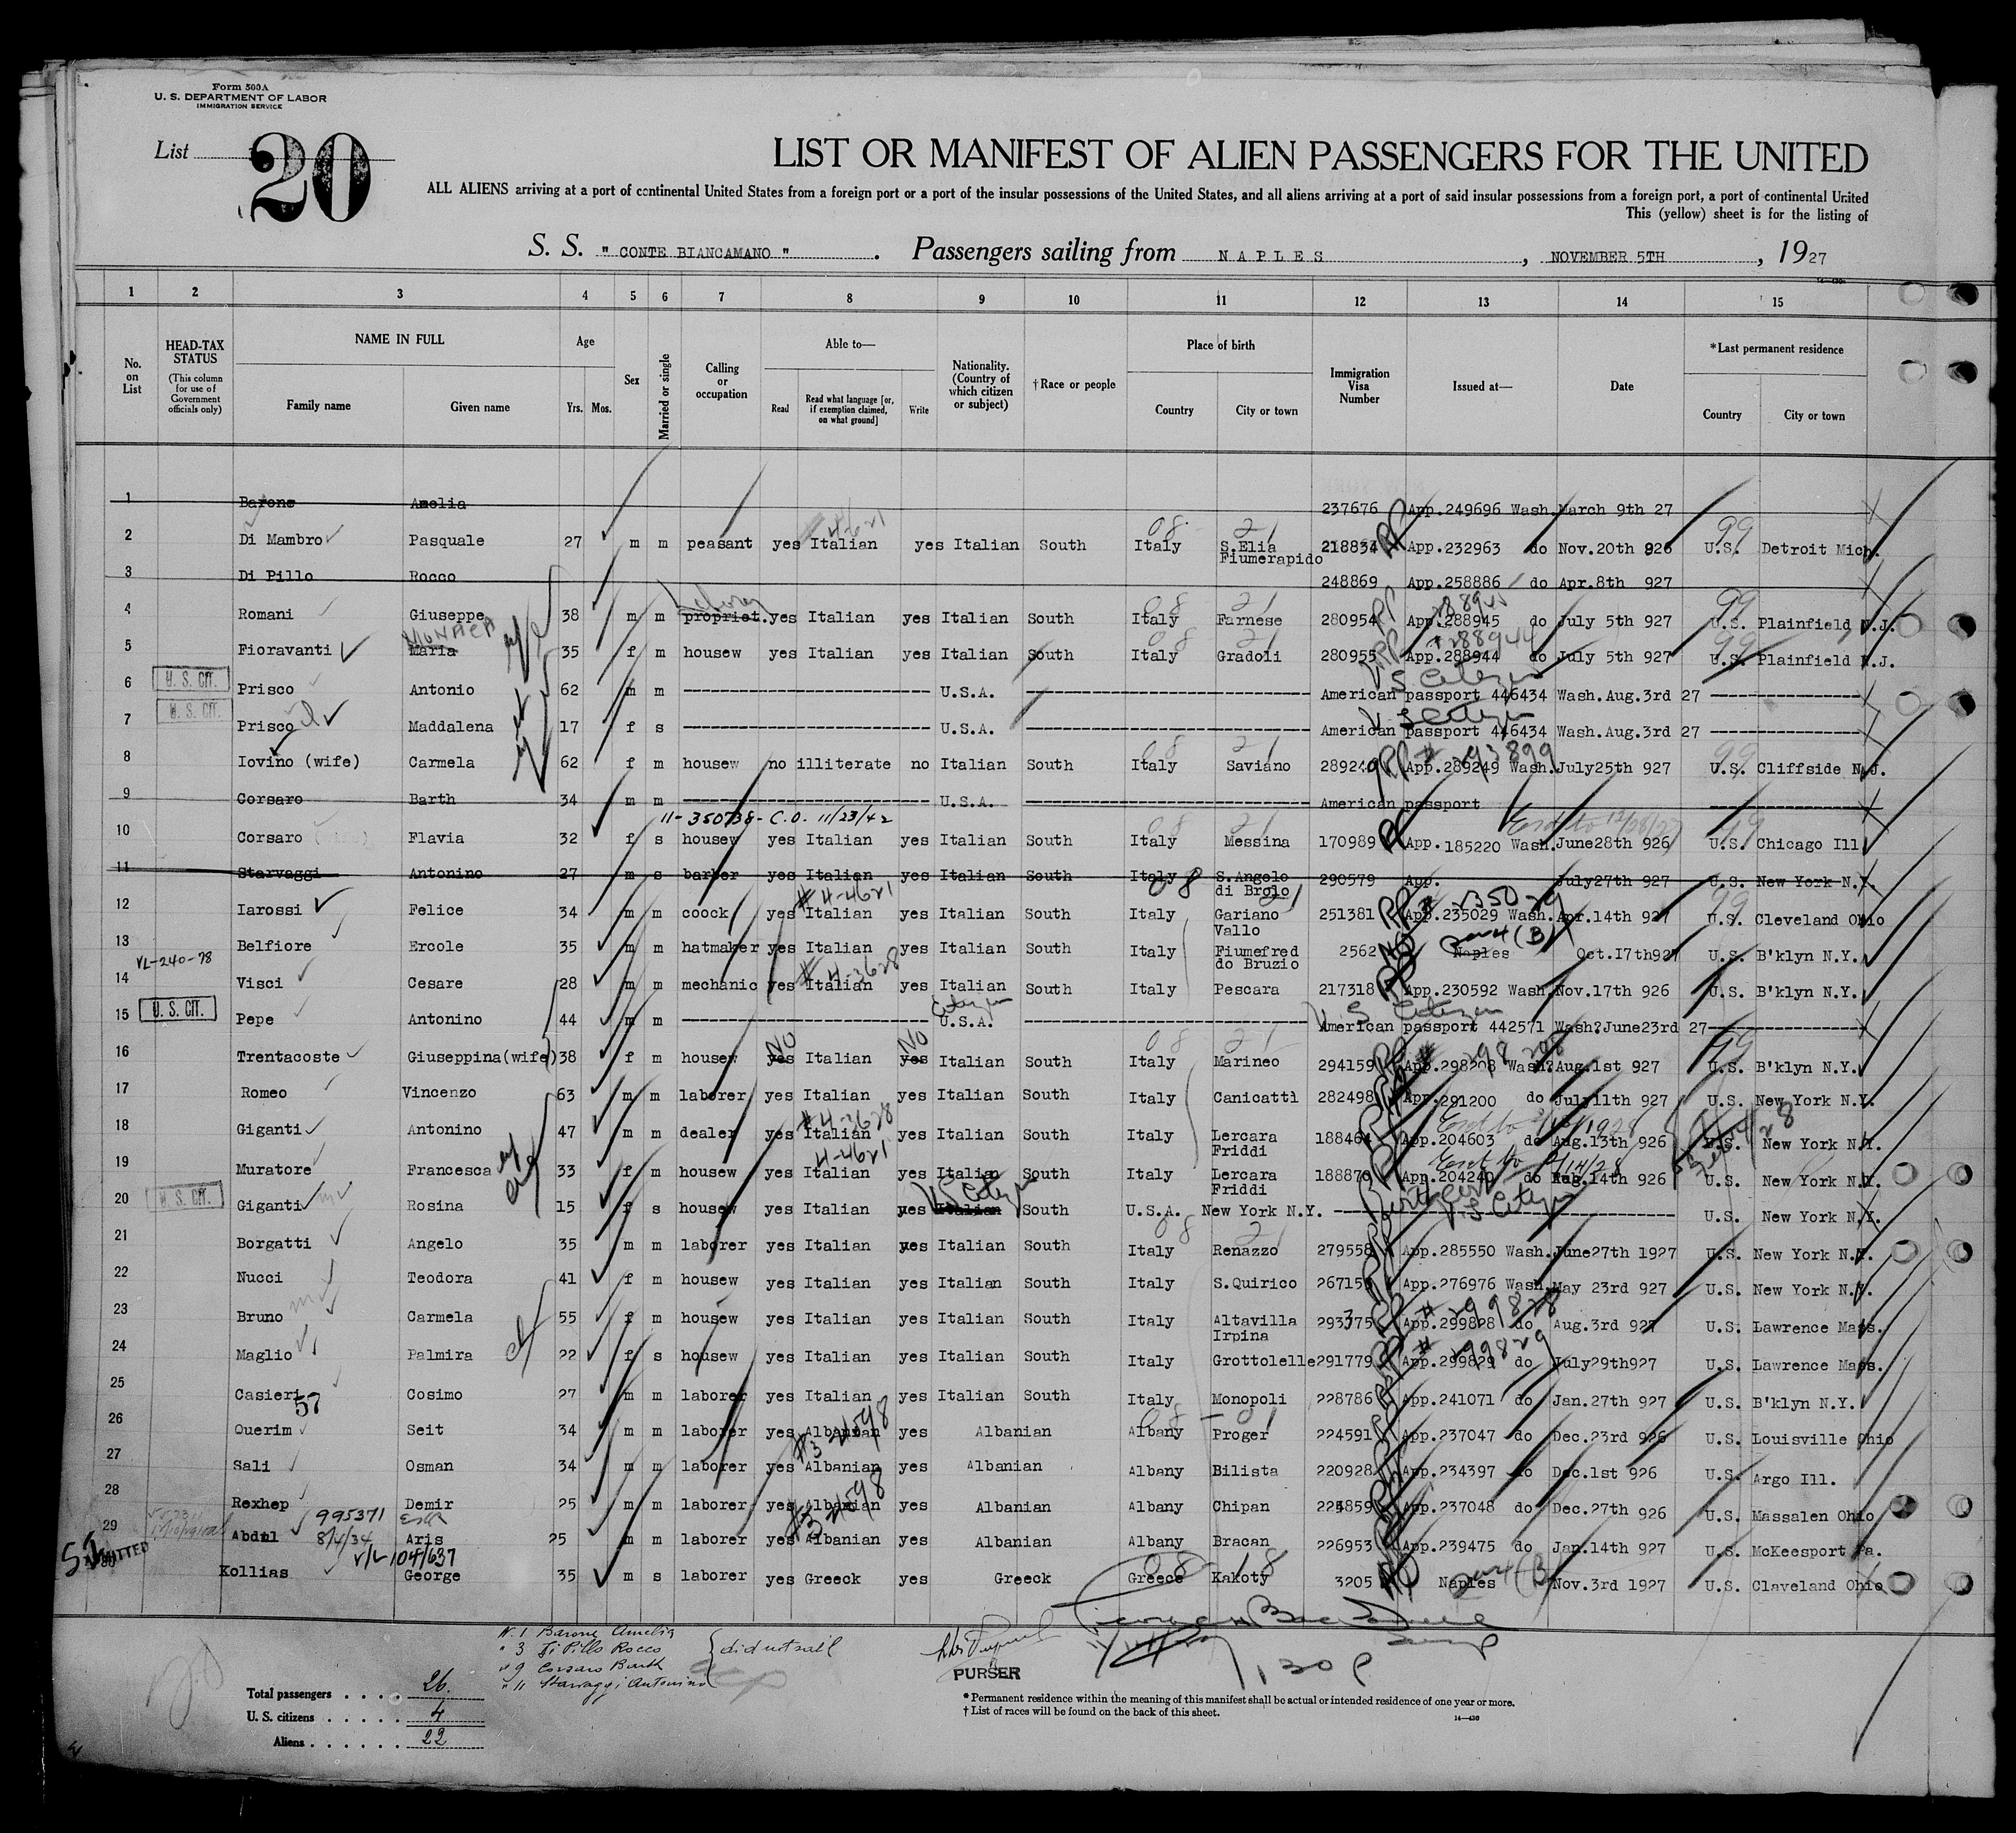 Form 500A
U. S. DEPARTMENT OF LABOR
IMMIGRATION SERVICE
List 20
LIST OR MANIFEST OF ALIEN PASSENGERS FOR THE UNITED
ALL ALIENS arriving at a port of continental United States from a foreign port or a port of the insular possessions of the United States, and all aliens arriving at a port of said insular possessions from a foreign port, a port of continental United
This (yellow) sheet is for the listing of
S. S. " CONTE BIANCAMANO " . Passengers sailing from NAPLES , NOVEMBER 5TH , 1927
1 2 3 4 5 6 7 8 9 10 11 12 13 14 15
No. on List HEAD-TAX STATUS (This column for use of Government officials only) NAME IN FULL Family name Given name Age Yrs. Mos. Sex Married or single Calling or occupation Able to— Read Read what language [or, if exemption claimed, on what ground] Write Nationality. (Country of which citizen or subject) †Race or people Place of birth Country City or town Immigration Visa Number Issued at— Date *Last permanent residence Country City or town
1 Barone Amelia 237676 App.249696 Wash. March 9th 27
2 Di Mambro Pasquale 27 m m peasant yes Italian yes Italian South Italy S.Elia Fiumerapido 218834 App.232963 do Nov.20th 926 U.S. Detroit Mich.
3 Di Pillo Rocco 248869 App.258886 do Apr.8th 927
4 Romani Giuseppe 38 m m propriet. yes Italian yes Italian South Italy Farnese 280954 App.288945 do July 5th 927 U.S. Plainfield N.J.
5 Fioravanti Maria 35 f m housew yes Italian yes Italian South Italy Gradoli 280955 App.288944 do July 5th 927 U.S. Plainfield N.J.
6 U. S. CIT. Prisco Antonio 62 m m U.S.A. American passport 446434 Wash.Aug.3rd 27
7 U. S. CIT. Prisco Maddalena 17 f s U.S.A. American passport 446434 Wash.Aug.3rd 27
8 Iovino (wife) Carmela 62 f m housew no illiterate no Italian South Italy Saviano 289249 App.289249 Wash. July25th 927 U.S. Cliffside N.J.
9 Corsaro Barth 34 m m U.S.A. American passport
11-350738- C.O. 11/23/42
10 Corsaro Flavia 32 f s housew yes Italian yes Italian South Italy Messina 170989 App.185220 Wash. June28th 926 U.S. Chicago Ill
11 Starvaggi Antonino 27 m s barber yes Italian yes Italian South Italy S.Angelo di Brolo 290579 App. July27th 927 U.S. New York N.Y.
12 Iarossi Felice 34 m m coock yes Italian yes Italian South Italy Gariano Vallo 251381 App.235029 Wash. Apr.14th 927 U.S. Cleveland Ohio
13 Belfiore Ercole 35 m m hatmaker yes Italian yes Italian South Italy Fiumefred do Bruzio 2562 Naples Oct.17th927 U.S. B'klyn N.Y.
VL-240-78
14 Visci Cesare 28 m m mechanic yes Italian yes Italian South Italy Pescara 217318 App.230592 Wash. Nov.17th 926 U.S. B'klyn N.Y.
15 U. S. CIT. Pepe Antonino 44 m m U.S.A. American passport 442571 Wash?June23rd 27
16 Trentacoste Giuseppina(wife) 38 f m housew yes NO Italian yes NO Italian South Italy Marineo 294159 App.298208 Wash? Aug.1st 927 U.S. B'klyn N.Y.
17 Romeo Vincenzo 63 m m laborer yes Italian yes Italian South Italy Canicattì 282498 App.291200 do July11th 927 U.S. New York N.Y.
18 Giganti Antonino 47 m m dealer yes Italian yes Italian South Italy Lercara Friddi 188464 App.204603 do Aug.13th 926 U.S. New York N.Y.
19 Muratore Francesca 33 f m housew yes Italian yes Italian South Italy Lercara Friddi 188870 App.204240 do Aug.14th 926 U.S. New York N.Y.
20 U. S. CIT. Giganti Rosina 15 f s housew yes Italian yes Italian South U.S.A. New York N.Y. U.S. New York N.Y.
21 Borgatti Angelo 35 m m laborer yes Italian yes Italian South Italy Renazzo 279558 App.285550 Wash. June27th 1927 U.S. New York N.Y.
22 Nucci Teodora 41 f m housew yes Italian yes Italian South Italy S.Quirico 267156 App.276976 Wash. May 23rd 927 U.S. New York N.Y.
23 Bruno Carmela 55 f m housew yes Italian yes Italian South Italy Altavilla Irpina 293375 App.299828 do Aug.3rd 927 U.S. Lawrence Mass.
24 Maglio Palmira 22 f s housew yes Italian yes Italian South Italy Grottolelle 291779 App.299829 do July29th927 U.S. Lawrence Mass.
25 Casieri Cosimo 27 m m laborer yes Italian yes Italian South Italy Monopoli 228786 App.241071 do Jan.27th 927 U.S. B'klyn N.Y.
57
26 Querim Seit 34 m m laborer yes Albanian yes Albanian Albany Proger 224591 App.237047 do Dec.23rd 926 U.S. Louisville Ohio
27 Sali Osman 34 m m laborer yes Albanian yes Albanian Albany Bilista 220928 App.234397 do Dec.1st 926 U.S. Argo Ill.
28 Rexhep Demir 25 m m laborer yes Albanian yes Albanian Albany Chipan 224859 App.237048 do Dec.27th 926 U.S. Massalen Ohio
995371
29 Abdul 8/4/34 Aris 25 m m laborer yes Albanian yes Albanian Albany Bracan 226953 App.239475 do Jan.14th 927 U.S. McKeesport Pa.
V/L 104/637
ADMITTED
30 Kollias George 35 m s laborer yes Greeck yes Greeck Greece Kakoty 3205 Naples Nov.3rd 1927 U.S. Claveland Ohio
N. 1 Barone Amelia
" 3 Di Pillo Rocco
" 9 Corsaro Barth
" 11 Starvaggi Antonino
did not sail
PURSER
130 P
Total passengers . . . . 26.
U. S. citizens . . . . . 4
Aliens . . . . . . 22
* Permanent residence within the meaning of this manifest shall be actual or intended residence of one year or more.
† List of races will be found on the back of this sheet.
14—430